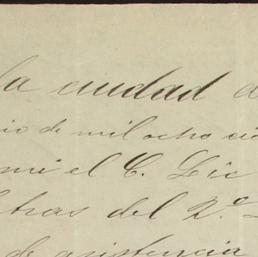 la ciudad d
io de mil ocho cie
mi el C. Lic
Letras del 2.º
de asistencia